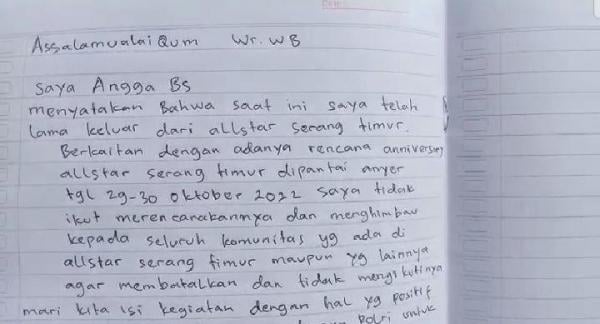 AssalamualaiQum Wr. WB
Saya Angga Bs
menyatakan Bahwa saat ini saya telah
lama keluar dari allstar serang timur.
Berkaitan dengan adanya rencana anniversey
allstar serang timur dipantai anyer
tgl 29-30 oktober 2022 saya tidak
ikut merencanakannya dan menghimbau
kepada seluruh komunitas yg ada di
allstar serang timur maupun yg lainnya
agar membatalkan dan tidak mengikutinya
mari kita isi kegiatan dengan hal yg positif
polri untuk